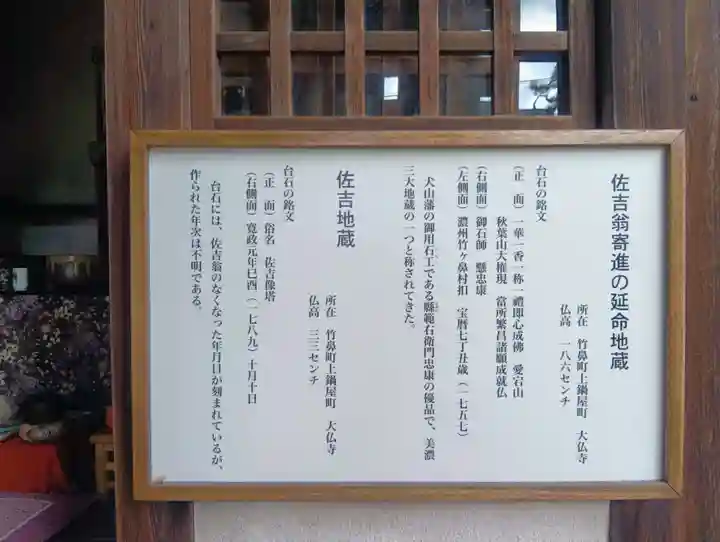 佐吉翁寄進の延命地蔵
所在 竹鼻町上鍋屋町 大仏寺
仏高 一八六センチ
台石の銘文
(正 面) 一華一香一称一禮即心成佛 愛宕山
秋葉山大権現 當所繁昌諸願成就仏
(右側面) 御石師 懸忠康
(左側面) 濃州竹ヶ鼻村担 宝暦七丁丑歳(一七五七)
犬山藩の御用石工である縣範右衛門忠康の優品で、美濃
三大地蔵の一つと称されてきた。
佐吉地蔵
所在 竹鼻町上鍋屋町 大仏寺
仏高 三三センチ
台石の銘文
(正 面) 俗名 佐吉像塔
(右側面) 寛政元年巳酉(一七八九)十月十日
台石には、佐吉翁のなくなった年月日が刻まれているが、
作られた年次は不明である。